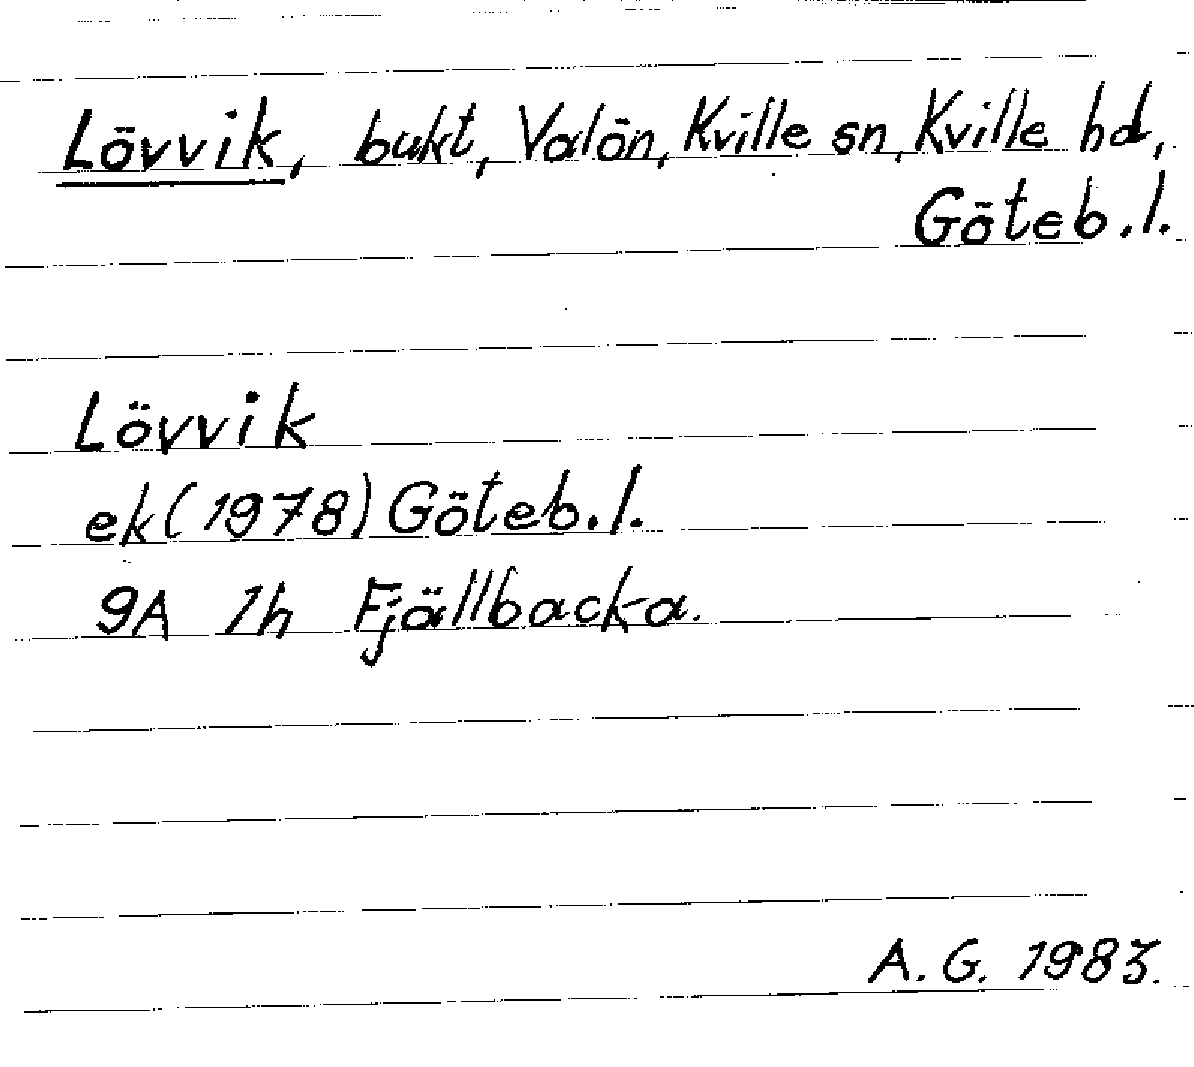 Lövvik, bukt, Valön, Kville sn, Kville hd,
Göteb.l.
Lövvik
ek (1978) Göteb.l.
9A 1h Fjällbacka.
A. G. 1983.